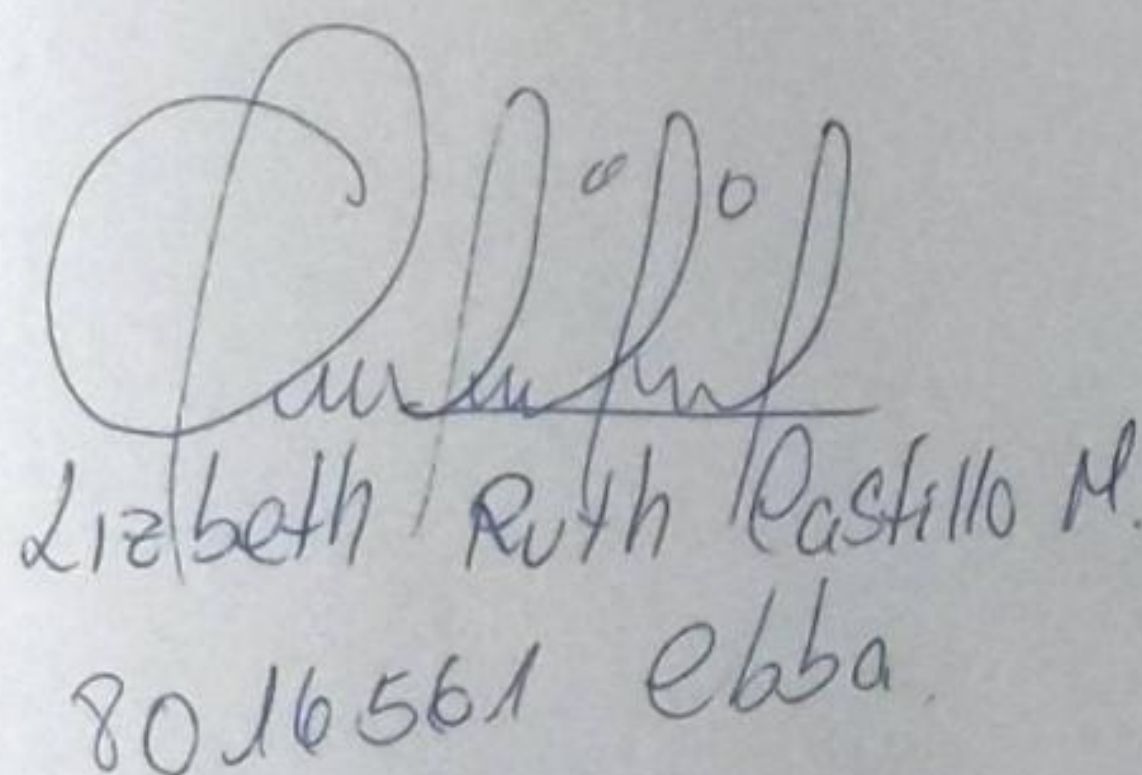 Lizbeth Ruth Castillo M.
8016561 Cbba.